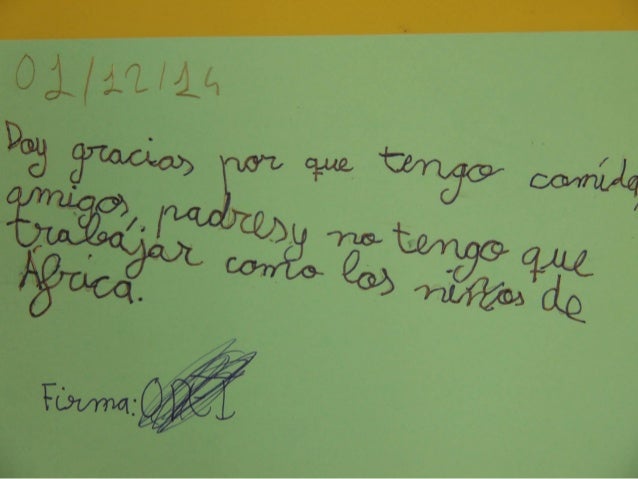 01/12/14
Doy gracias por que tengo comida,
amigos, padres y no tengo que
trabajar como los niños de
África.
Firma: